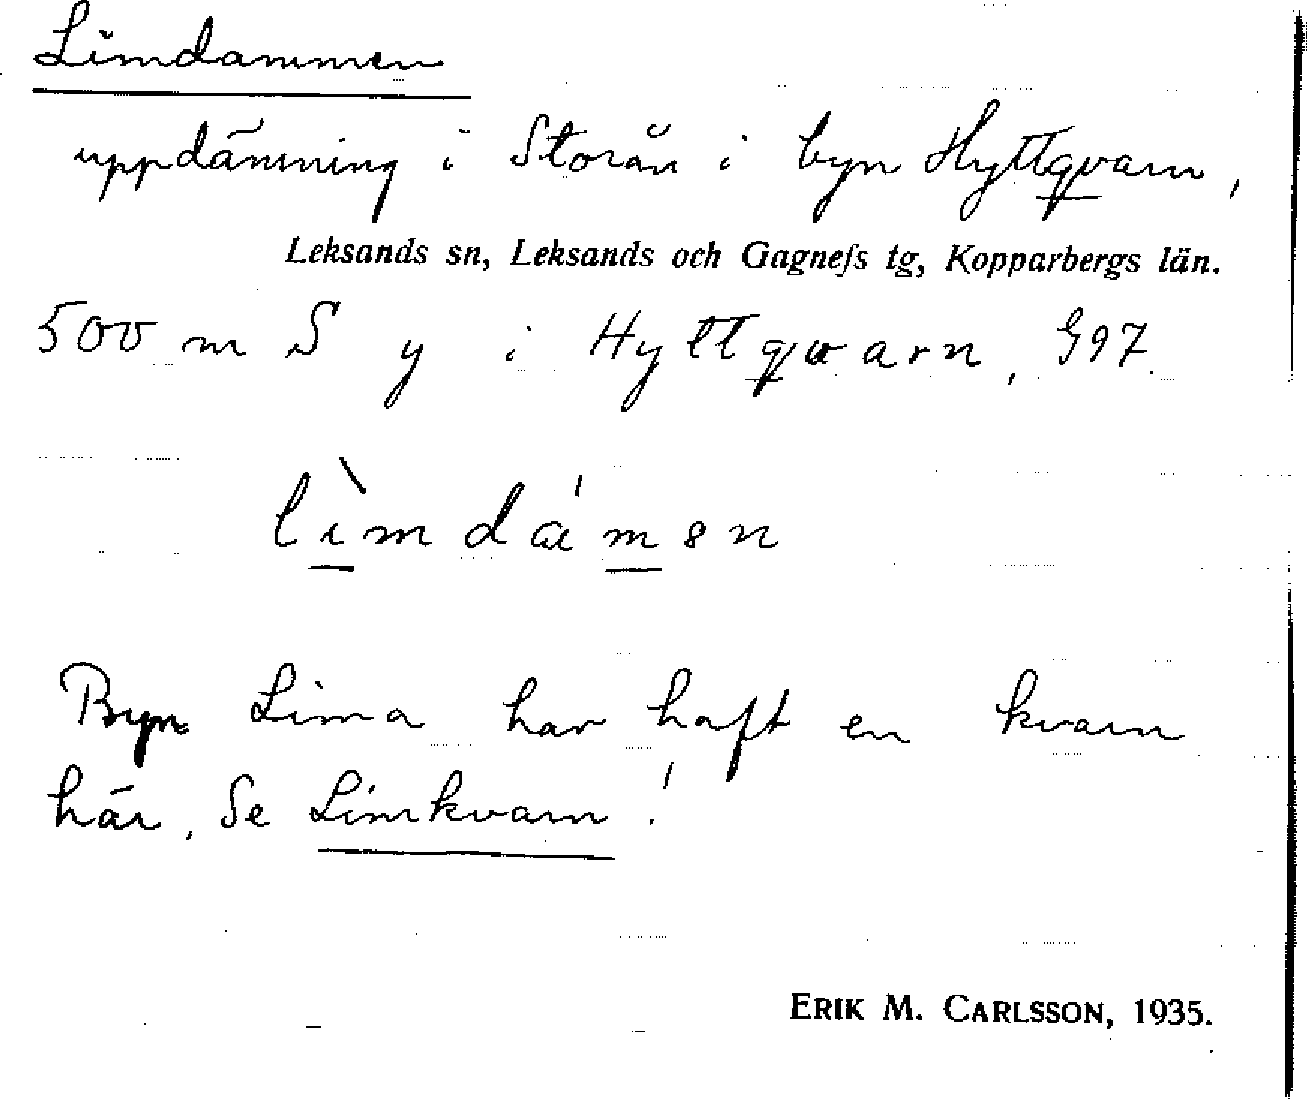 Limdammen
uppdämning i Storån i byn Hyttqvarn,
Leksands sn, Leksands och Gagnefs tg, Kopparbergs län.
500 m S y i Hyttqvarn, G97.
lìmdámen
Byn Lima har haft en kvarn
här. Se Limkvarn!
ERIK M. CARLSSON, 1935.